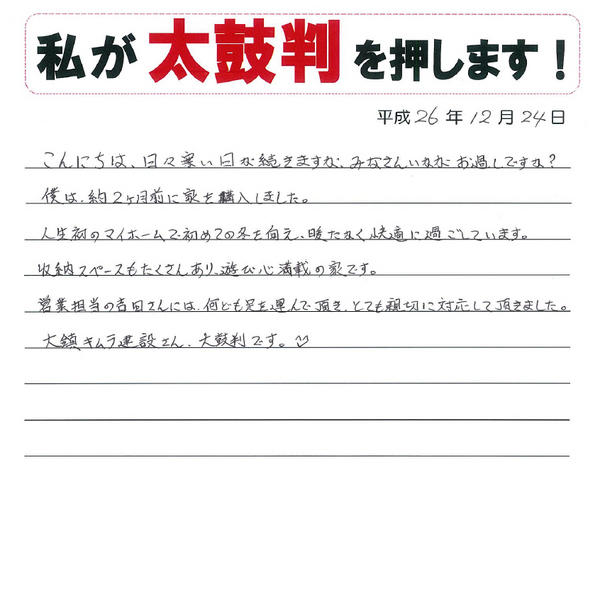 私が太鼓判を押します！
平成26年12月24日
こんにちは、日々寒い日が続きますが、みなさんいかがお過しですか？
僕は、約2ヶ月前に家を購入しました。
人生初のマイホームで初めての冬を向え、暖たかく快適に過ごしています。
収納スペースもたくさんあり、遊び心満載の家です。
営業担当の吉田さんには、何ども足を運んで頂き、とても親切に対応して頂きました。
大鎮キムラ建設さん、太鼓判です。♡